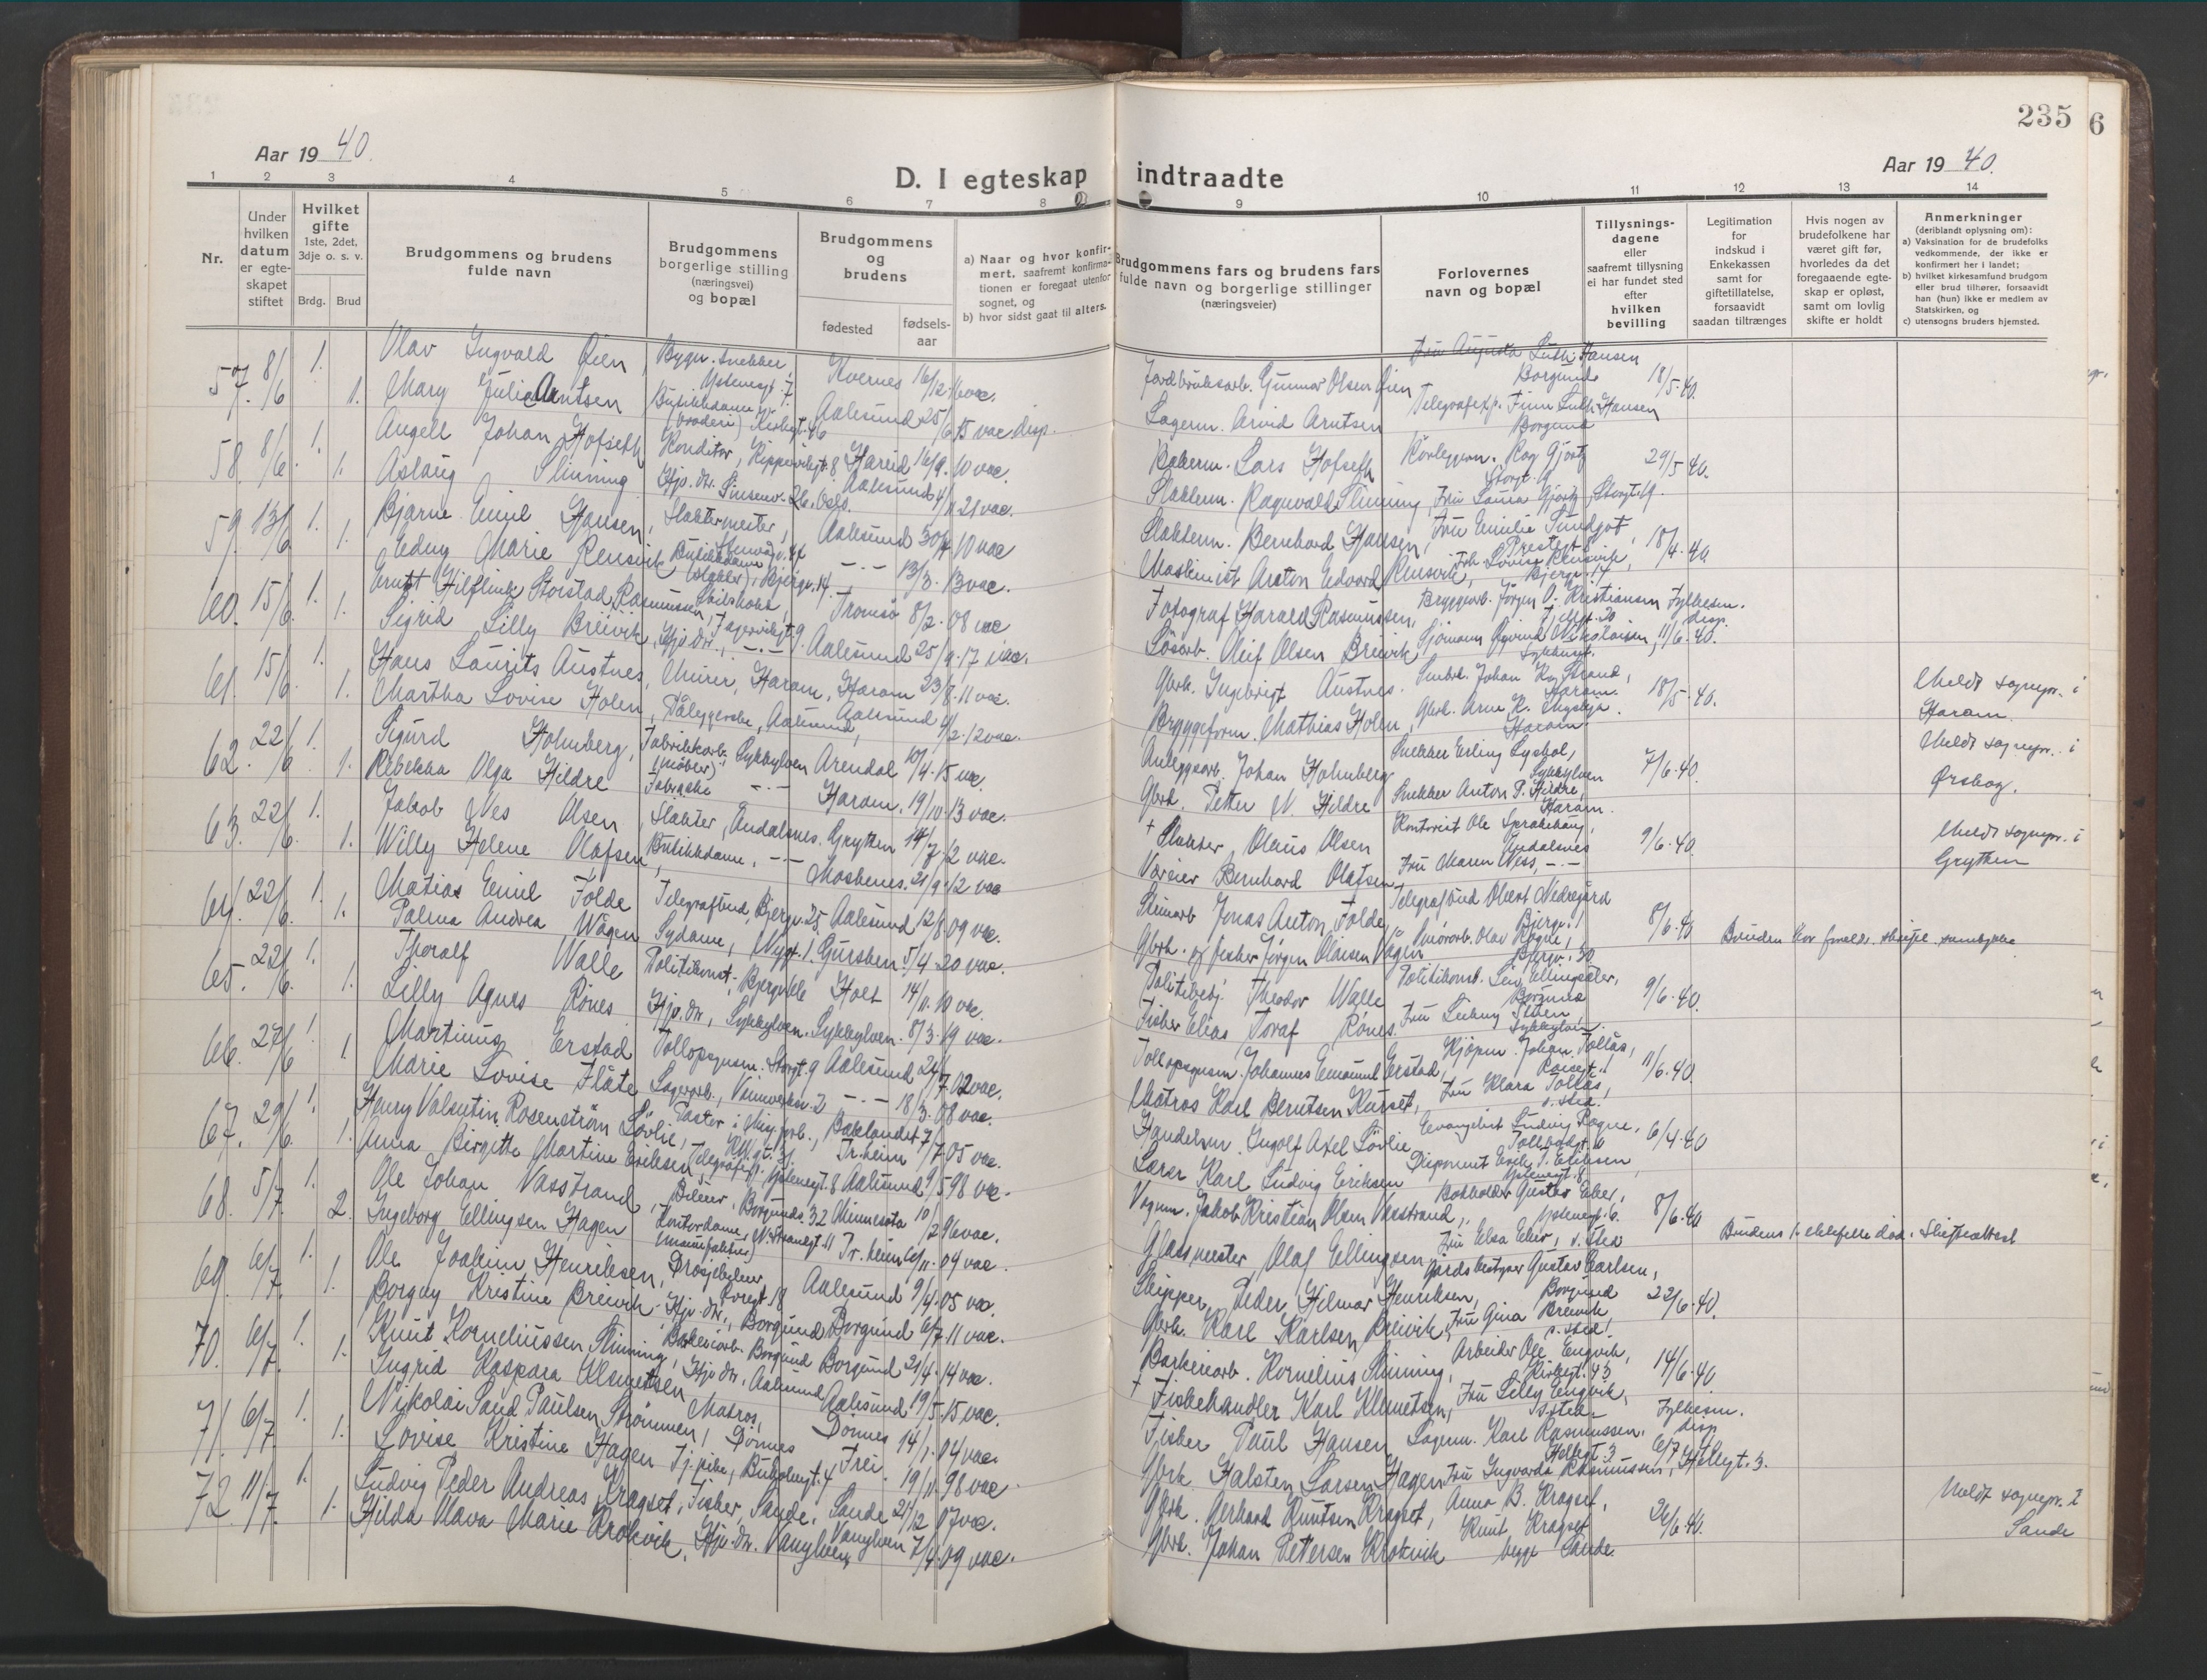 235
6
Aar 19 40.
D. I egteskap indtraadte
Aar 19 40.
1 2 3 4 5 6 7 8 9 10 11 12 13 14
Nr.
Under hvilken datum er egteskapet stiftet
Hvilket gifte 1ste, 2det, 3dje o. s. v.
Brdg. Brud
Brudgommens og brudens fulde navn
Brudgommens borgerlige stilling (næringsvei) og bopæl
Brudgommens og brudens
fødested
fødsels-aar
a) Naar og hvor konfirmert, saafremt konfirmationen er foregaat utenfor sognet, og
b) hvor sidst gaat til alters.
Brudgommens fars og brudens fars fulde navn og borgerlige stillinger (næringsveier)
Forlovernes navn og bopæl
Tillysnings-dagene eller saafremt tillysning ei har fundet sted efter hvilken bevilling
Legitimation for indskud i Enkekassen samt for giftetillatelse, forsaavidt saadan tiltrænges
Hvis nogen av brudefolkene har været gift før, hvorledes da det foregaaende egteskap er opløst, samt om lovlig skifte er holdt
Anmerkninger (deriblandt oplysning om):
a) Vaksination for de brudefolks vedkommende, der ikke er konfirmert her i landet;
b) hvilket kirkesamfund brudgom eller brud tilhører, forsaavidt han (hun) ikke er medlem av Statskirken, og
c) utensogns bruders hjemsted.
57. 8/6 1. Olav Ingvald Øien, Bygn. snekker, Kvernes 16/2 vac. Jordbruksarb. Gunnar Olsen Øien Borgund 18/5-40.
1. Mary Julie Arntsen Butikkdame Aalesund 25/6 15 vac disp. Lagerm. Arvid Arntsen Borgund
58. 8/6. 1. Angell Johan Hofseth Konditor, Kippervikgt. 8 Hareid 16/9. 10 vac. Bakerm. Lars Hofseth Rørleggerm. Gjørtz Storgt. 9 29/5 40.
1. Aslaug Slinning Hjv. dtr. Sinsenv. 26. Oslo. Aalesund 4/11 21 vac. Slakterm. Ragnvald Slinning, Fru Laura Gjørtz, Storgt. 9.
59. 13/6 1. Bjarne Emil Hansen, Slaktermester, Aalesund 30/4 10 vac Slakterm. Bernhard Hansen, Fru Emilie Sundgot, 18/4-40.
1. Edny Marie Rensvik Butikkdame, Bjergv. 14. -.- 13/3. 13 vac. Maskinist Anton Edvard Rensvik, Frk Lovise Rensvik, Bjergv. 14
60. 15/6 1. Ernst Hilflink Storstad Rasmussen, Skibskokk, Tromsø 8/2. 08 vac Fotograf Harald Rasmussen, Bryggearb. Jørgen O. Kristiansen Fylkesm. disp.
1. Sigrid Lilly Breivik, Hjv. dtr., -.- Aalesund 25/9. 17 vac. Løsarb. Leif Olsen Breivik Sjømann Øyvind Nikolaisen, 11/6-40.
61. 15/6. 1. Hans Laurits Austnes, Murer, Haram, Haram 23/8. 11 vac. Gbrk. Ingebrigt Austnes. Smbrk. Johan K. Strand, Haram. 18/5-40. Meldt sognepr. i Haram.
1. Martha Lovise Holen, Påleggerske, Aalesund, Aalesund 4/2. 12 vac. Bryggeform. Mathias Holen, Gbrk. Arne K. Haram
62. 22/6 1. Sigurd Holmberg, Fabrikkarb. (møbler), Sykkylven Arendal 10/4. 15 vac. Anleggsarb. Johan Holmberg Snekker Erling Lyshol, Sykkylven 7/6-40. Meldt sognepr. i Ørskog.
1. Rebekka Olga Hildre Fabrarb. -.- Haram. 19/10. 13 vac. Gbrk. Petter N. Hildre Snekker Anton P. Hildre, Haram.
63. 22/6. 1. Jakob Nes Olsen, Slakter, Åndalsnes. Grytten 14/7. 12 vac. † Slakter Olaus Olsen Kontorist Ole Sprakehaug, Åndalsnes 9/6-40. Meldt sognepr. i Grytten
1. Willy Helene Olafsen, Butikkdame, -.- Moskenes. 21/9. 12 vac Varsier Bernhard Olafsen Fru Maren Wess, -.-
64. 22/6. 1. Matias Emil Folde Telegrafbud, Bjergv. 25. Aalesund 12/8 09 vac. Steinarb Jonas Anton Folde, Telegrafbud Olbert Nedregård Bjergv. 1 8/6-40
1. Palma Andrea Wågen Sydame, Nygt. 1. Gursken 5/4. 20 vac. Gbrk. og fisker Jørgen Olaisen Vågen Olav Rogne, Bjergv. 30
65. 22/6. 1. Thoralf Walle Politikonst. Holt 14/11. 10 vac. Politibetj. Theodor Walle Politikonst. Leiv Ellingsæter, Borgund 9/6-40.
1. Lilly Agnes Rønes Hjv. dtr, Sykkylven. Sykkylven. 8/3. 19 vac. Fisker Elias Toraf Rønes. Fru Sykkylven.
66. 27/6 1. Martinus Erstad Tollopsynsm. Storgt. 9 Aalesund 24/7. 02 vac. Tollopsynsm. Johannes Emanuel Erstad, Kjøpm. Johan Tollås, 11/6-40.
1. Marie Lovise Flåte Lagerarb., -.- 18/3. 08 vac. Matros Karl Berntsen Kurset, Fru Klara Tollås, s. sted.
67. 29/6. 1. Henry Valentin Rosenstrøm Løvlie, Pastor i Misj.forb., Baklandet Tr.heim 7/7. 05 vac. Handelsm. Ingolf Axel Løvlie Evangelist Ludvig Rogne, 6/4-40
1. Anna Birgitte Martine Eriksen, Telegrafist. Ystenesgt. 8 Aalesund 9/5 98 vac. Lærer Karl Ludvig Eriksen Disponent Erik T. Eriksen, Ystenesgt. 8
68. 5/7. 1. Ole Johan Vasstrand, Bileier, Borgundv. 32 Minnesota 10/2 96 vac. Vognm. Jakob Kristian Olsen Vasstrand, Bokholder Gustav Eker, Ystenesgt. 6. 8/6-40
2. Ingeborg Ellingsen Hagen Kontordame, (manufaktur) Tr.heim 6/11. 04 vac. Glassmester Olaf Ellingsen Fru Elsa Eker, s. sted Brudens 1. ektefelle død. Skifteattest
69. 6/7. 1. Ole Joakim Henriksen, Drosjebileier, Aalesund 9/4. 05 vac. Skipper Peder Hilmar Henriksen, Gårdsbestyrer Gustav Carlsen, Borgund 22/6-40.
1. Borgny Kristine Breivik. Hjv. dtr., Borgund Borgund 6/7 11 vac. Gbrk. Karl Karlsen Breivik, Fru Gina Breivik s. sted.
70. 6/7. 1. Knut Korneliussen Slinning, Barkeriarb. Borgund Borgund 21/4. 14 vac. Barkeriarb. Kornelius Slinning, Arbeider Ole Engvik, Kirkegt. 43 14/6-40
1. Ingrid Kaspara Klemetsen Hjv. dtr, Aalesund Aalesund 19/5. 15 vac. † Fiskehandler Karl Klemetsen, Fru Lilly Engvik, s. sted.
71. 6/7. 1. Nikolai Sand Paulsen Strømmen, Matros, Dønnes Dønnes 14/1. 04 vac. Fisker Paul Hansen Lagerm. Karl Rasmussen, Fylkesm. disp 6/7
1. Lovise Kristine Hagen Tj.pike, Buholmgt. 4 Frei. 19/11. 98 vac Gbrk. Halsten Larsen Hagen Fru Ingvarda Rasmussen,
72. 11/7. 1. Ludvig Peder Andreas Kragset, Fisker, Sande, Sande 21/12 07 vac. Gbrk. Gerhard Knutsen Kragset, Anna B. Kragset, 26/6-40. Meldt sognepr. i Sande
1. Hilda Klava Marie Krokvik, Hjv. dtr. Vanylven Vanylven 7/4. 09 vac. Gbrk. Johan Petersen Krokvik Knut Kragset begge Sande.